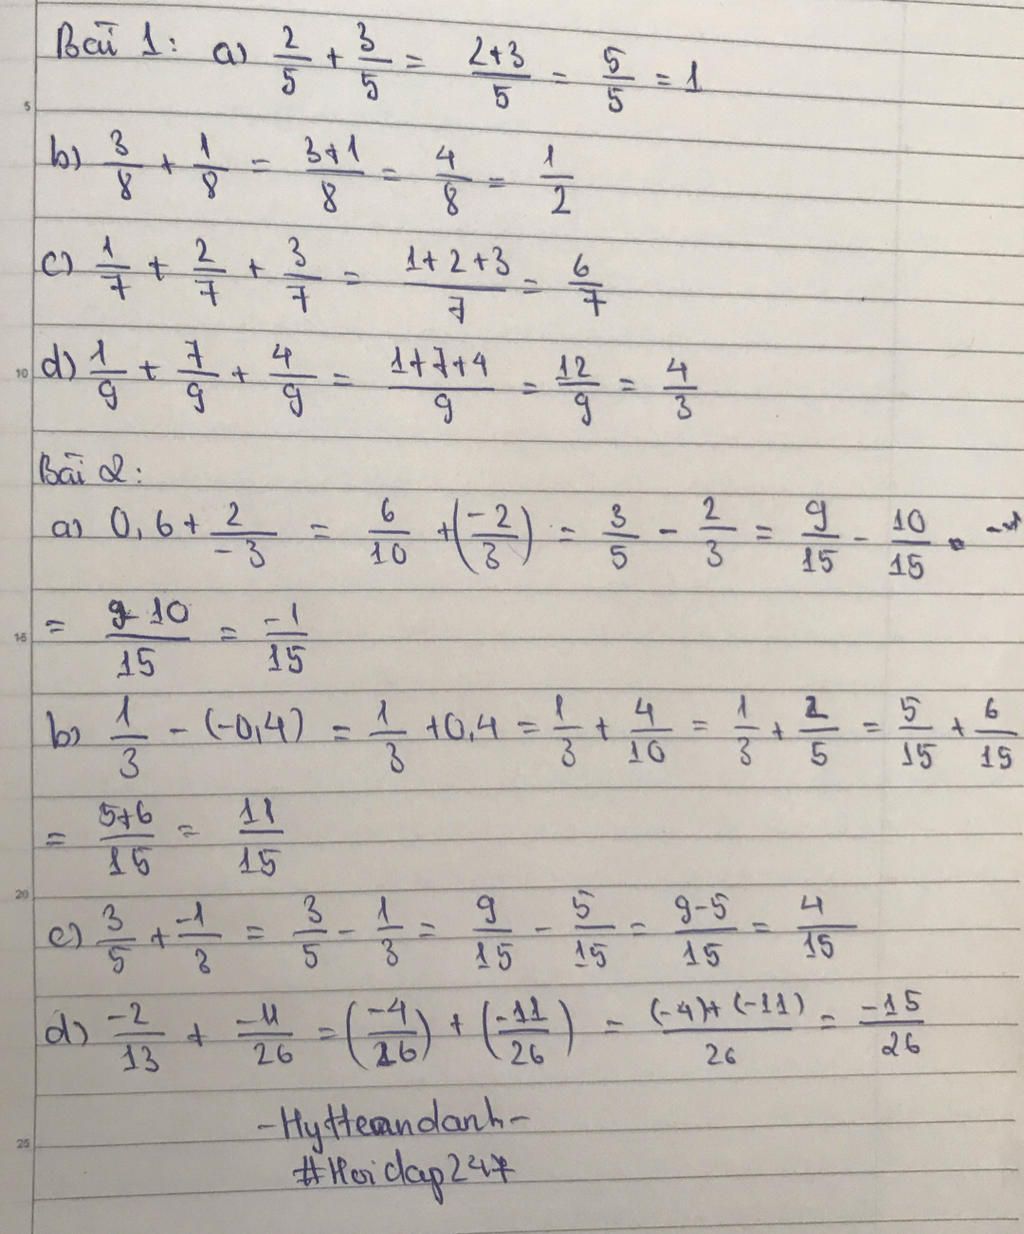 Bài 1: a) 2/5 + 3/5 = (2+3)/5 = 5/5 = 1
b) 3/8 + 1/8 = (3+1)/8 = 4/8 = 1/2
c) 1/7 + 2/7 + 3/7 = (1+2+3)/7 = 6/7
d) 1/9 + 7/9 + 4/9 = (1+7+4)/9 = 12/9 = 4/3
Bài 2:
a) 0,6 + 2/-3 = 6/10 + (-2/3) = 3/5 - 2/3 = 9/15 - 10/15
= (9-10)/15 = -1/15
b) 1/3 - (-0,4) = 1/3 + 0,4 = 1/3 + 4/10 = 1/3 + 2/5 = 5/15 + 6/15
= (5+6)/15 = 11/15
c) 3/5 + -1/3 = 3/5 - 1/3 = 9/15 - 5/15 = (9-5)/15 = 4/15
d) -2/13 + -11/26 = (-4/26) + (-11/26) = ((-4)+(-11))/26 = -15/26
#Hoidap247
5
10
15
20
25